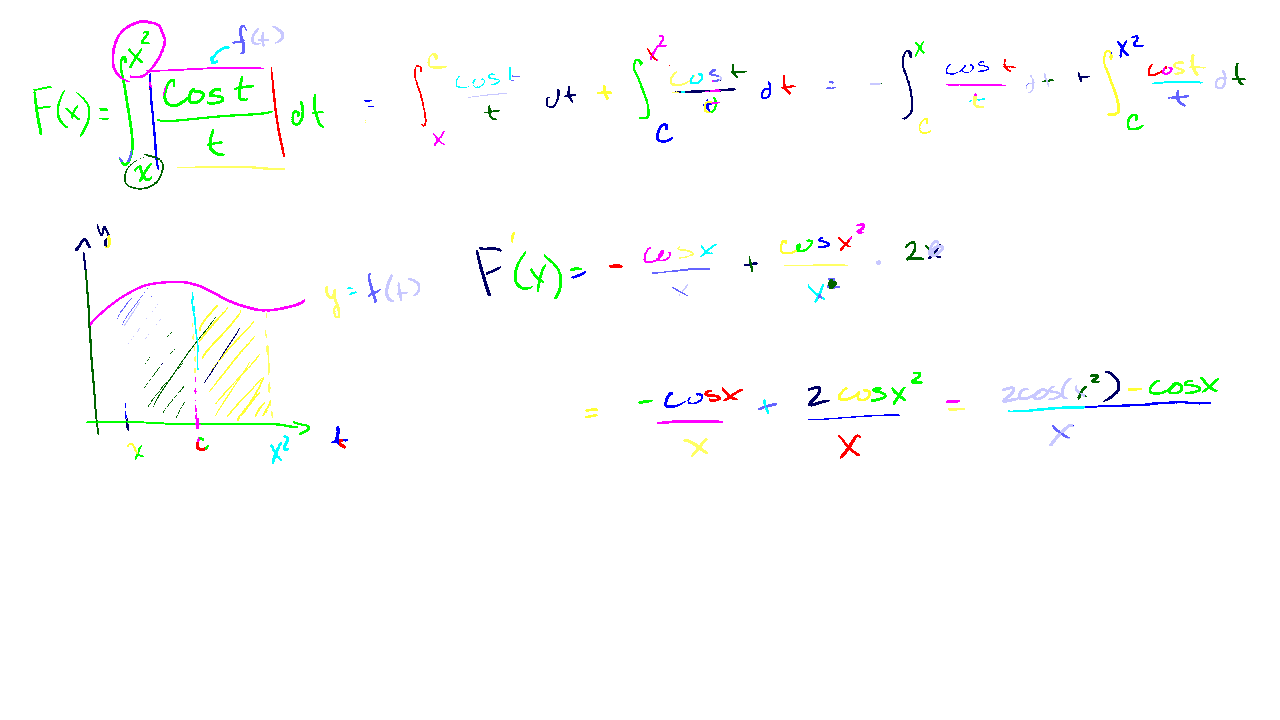 f(t)
F(x) = ∫ₓ^{x²} cos t / t dt = ∫ₓ^{c} cos t / t dt + ∫_c^{x²} cos t / t dt = - ∫_c^{x} cos t / t dt + ∫_c^{x²} cos t / t dt
y
F'(x) = - cos x / x + cos x² / x · 2
y = f(t)
= -cos x / x + 2 cos x² / x = 2cos(x²) - cos x / x
x c x² t